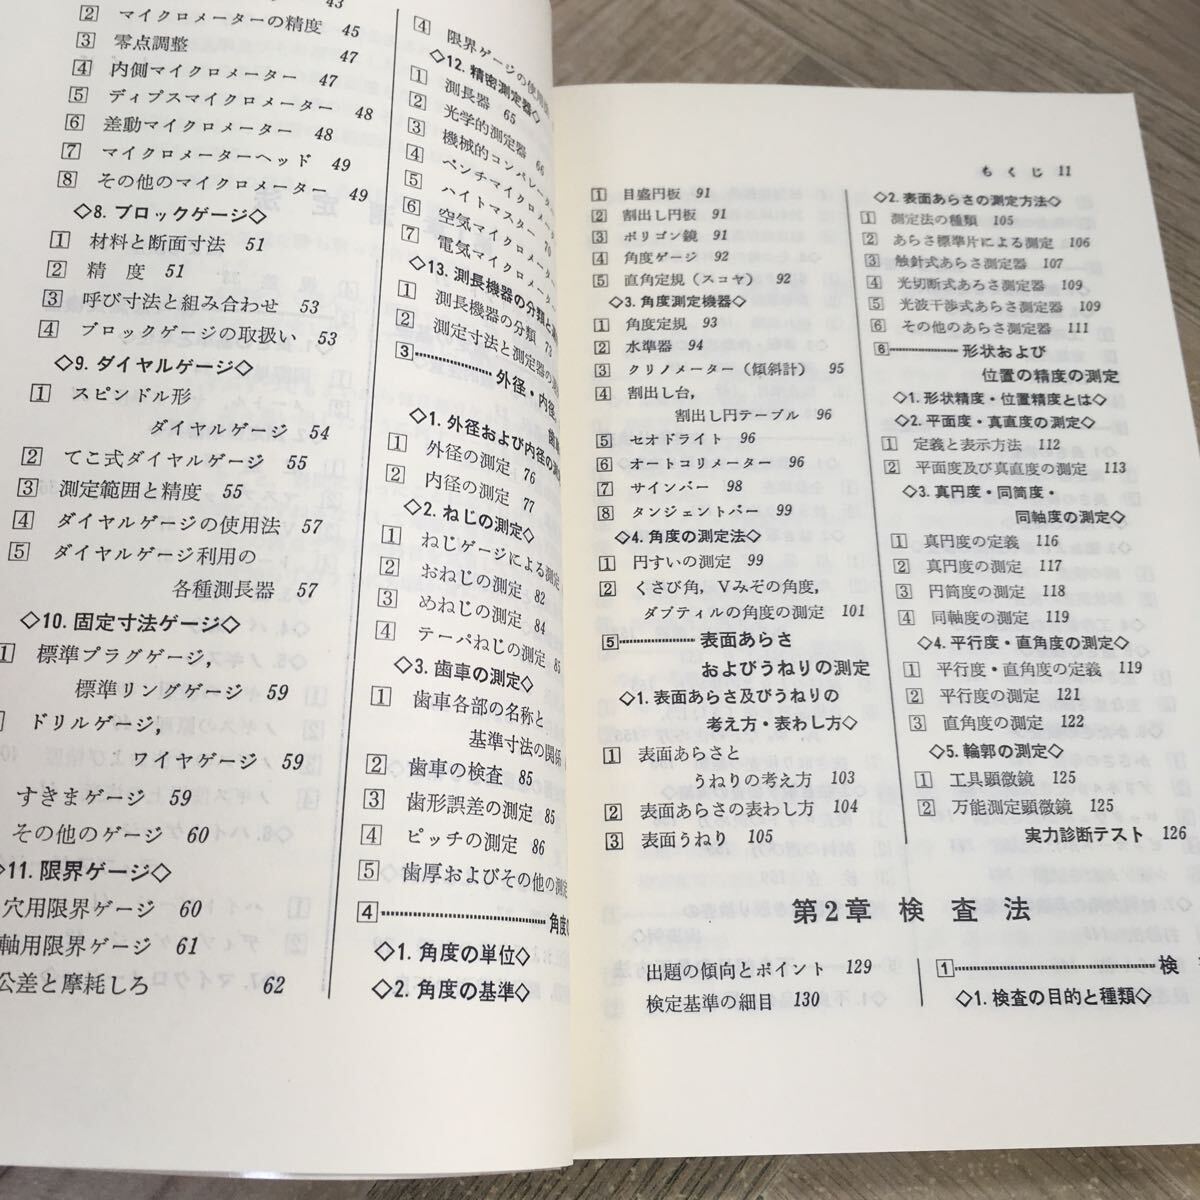 43
2 マイクロメーターの精度 45
3 零点調整 47
4 内側マイクロメーター 47
5 ディプスマイクロメーター 48
6 差動マイクロメーター 48
7 マイクロメーターヘッド 49
8 その他のマイクロメーター 49
◇8. ブロックゲージ◇
1 材料と断面寸法 51
2 精度 51
3 呼び寸法と組み合わせ 53
4 ブロックゲージの取扱い 53
◇9. ダイヤルゲージ◇
1 スピンドル形
ダイヤルゲージ 54
2 てこ式ダイヤルゲージ 55
3 測定範囲と精度 55
4 ダイヤルゲージの使用法 57
5 ダイヤルゲージ利用の
各種測長器 57
◇10. 固定寸法ゲージ◇
1 標準プラグゲージ,
標準リングゲージ 59
ドリルゲージ,
ワイヤゲージ 59
すきまゲージ 59
その他のゲージ 60
◇11. 限界ゲージ◇
穴用限界ゲージ 60
軸用限界ゲージ 61
公差と摩耗しろ 62
4 限界ゲージの使用
◇12. 精密測定器◇
1 測長器 65
2 光学的測定器 66
3 機械的コンパレータ
4 ベンチマイクロメー
5 ハイトマスター 70
6 空気マイクロメータ
7 電気マイクロメータ
◇13. 測長機器の分類と
1 測長機器の分類 73
2 測定寸法と測定器の
3 外径・内径,
◇1. 外径および内径の測
1 外径の測定 76
2 内径の測定 77
◇2. ねじの測定◇
1 ねじゲージによる測定
2 おねじの測定 82
3 めねじの測定 84
4 テーパねじの測定
◇3. 歯車の測定◇
1 歯車各部の名称と
基準寸法の関係
2 歯車の検査 85
3 歯形誤差の測定 85
4 ピッチの測定 86
5 歯厚およびその他の測定
4 角度
◇1. 角度の単位◇
◇2. 角度の基準◇
もくじ 11
1 目盛円板 91
2 割出し円板 91
3 ポリゴン鏡 91
4 角度ゲージ 92
5 直角定規(スコヤ) 92
◇3. 角度測定機器◇
1 角度定規 93
2 水準器 94
3 クリノメーター(傾斜計) 95
4 割出し台,
割出し円テーブル 96
5 セオドライト 96
6 オートコリメーター 96
7 サインバー 98
8 タンジェントバー 99
◇4. 角度の測定法◇
1 円すいの測定 99
2 くさび角, Vみぞの角度,
ダブティルの角度の測定 101
5 表面あらさ
およびうねりの測定
◇1. 表面あらさ及びうねりの
考え方・表わし方◇
1 表面あらさと
うねりの考え方 103
2 表面あらさの表わし方 104
3 表面うねり 105
◇2. 表面あらさの測定方法◇
1 測定法の種類 105
2 あらさ標準片による測定 106
3 触針式あらさ測定器 107
4 光切断式あらさ測定器 109
5 光波干渉式あらさ測定器 109
6 その他のあらさ測定器 111
6 形状および
位置の精度の測定
◇1. 形状精度・位置精度とは◇
◇2. 平面度・真直度の測定◇
1 定義と表示方法 112
2 平面度及び真直度の測定 113
◇3. 真円度・同筒度・
同軸度の測定◇
1 真円度の定義 116
2 真円度の測定 117
3 円筒度の測定 118
4 同軸度の測定 119
◇4. 平行度・直角度の測定◇
1 平行度・直角度の定義 119
2 平行度の測定 121
3 直角度の測定 122
◇5. 輪郭の測定◇
1 工具顕微鏡 125
2 万能測定顕微鏡 125
実力診断テスト 126
第2章 検査法
出題の傾向とポイント 129
検定基準の細目 130
1 検
◇1. 検査の目的と種類◇